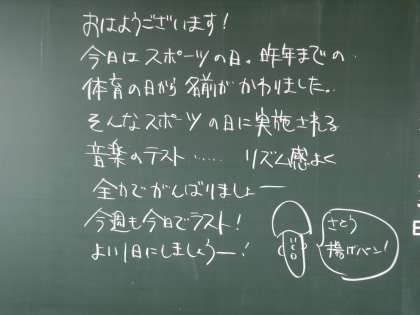 おはようございます!
今日はスポーツの日。昨年までの
体育の日から名前がかわりました。
そんなスポーツの日に実施される
音楽のテスト…… リズム感よく
全力でがんばりましょー
今週も今日でラスト!
よい1日にしましょうー!
さとう
揚げパン!